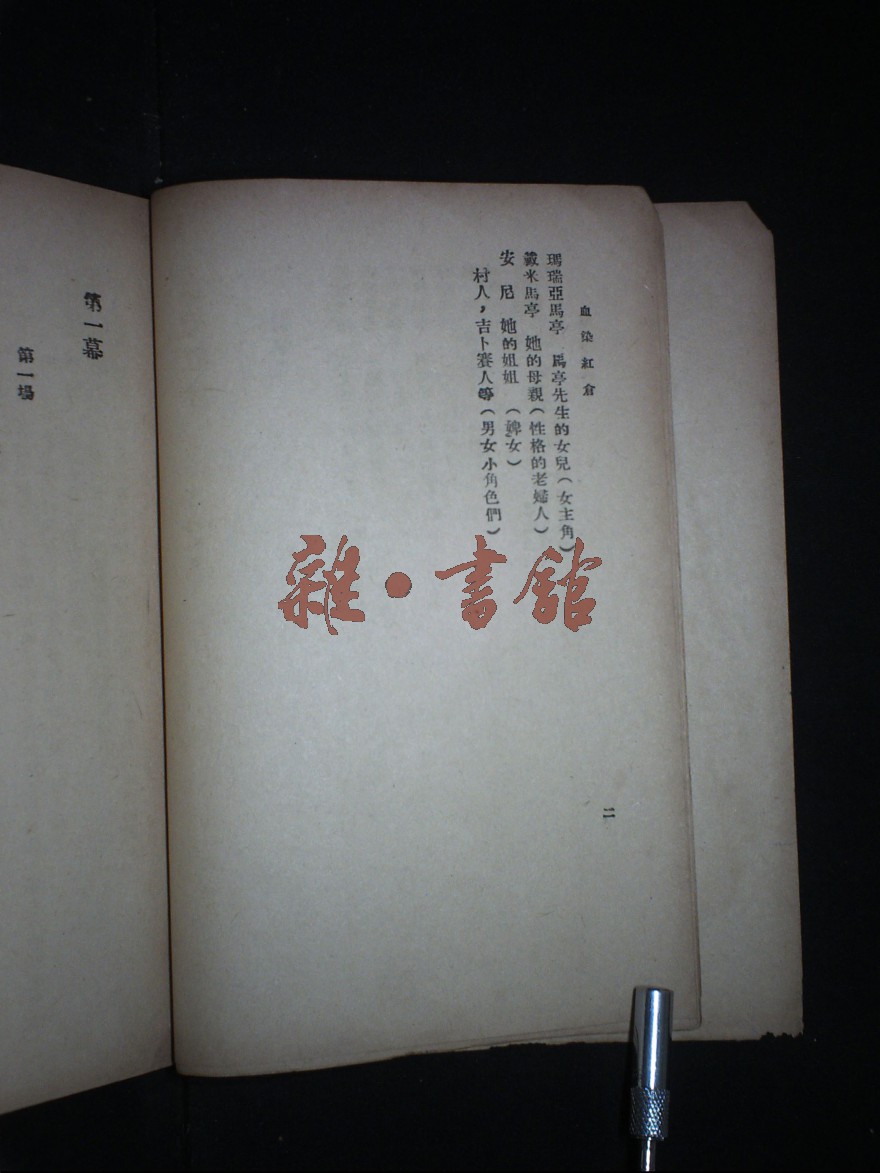 血染紅倉
瑪瑞亞馬亭 馬亭先生的女兒(女主角)
戴米馬亭 她的母親(性格的老婦人)
安尼 她的姐姐 (婢女)
村人,吉卜賽人等(男女小角色們)
二
第一幕
第一場
雜·書館